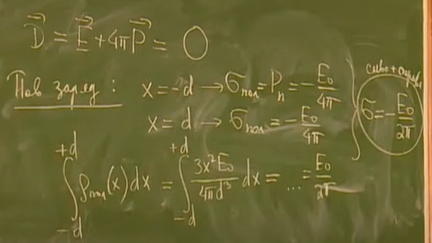 D⃗ = E⃗ + 4πP⃗ = 0
Пов заряд: x = -d → σ_пол = P_n = -E₀/4π
x = d → σ_пол = -E₀/4π
σ = -E₀/2π
∫_{-d}^{+d} ρ_пол(x)dx = ∫_{-d}^{+d} 3x²E₀/4πd³ dx = ... = E₀/2π